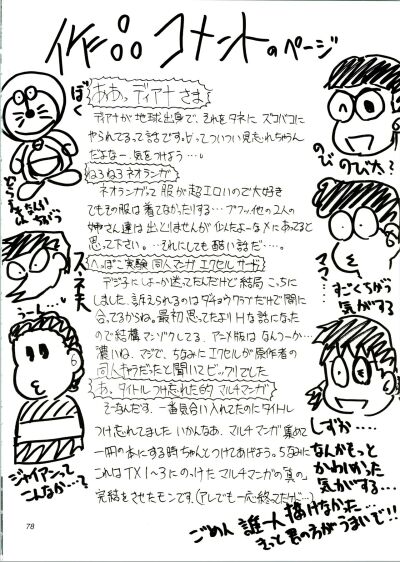 作品コメントのページ
ああっディアナさま
ディアナが地球出身で、それをタネにズコバコ
やられてるって話です。
だよなー、気をつけよう…。
ねろねろネオランガ
ネオランガって服が超エロいので大好き
でもその服は着てなかったりする…
姉さん達は出
思って下さい。…それにしても酷い話だ…。
へっぽこ実験同人マンガエクセルサード
デジ子にしよーか迷ってたんだけど結局こっちに
しました。訴えられるのはダチョウクラブだけで間に
合ってるからね。最初思ってたよりHな話になった
ので結構マンゾクしてる。アニメ版はなんつーか…
濃いね、マジで。ちなみにエクセルが原作者の
同人キャラだったと聞いてビックリでした
あ、タイトルつけ忘れた的マルチマンガ
そーなんだす、一番気合い入れてたのにタイトル
つけ忘れてました いかんなあ。マルチマンガ集めて
一冊の本にする時ちゃんとつけてあげよう。ちなみに
これはTX1~3にのっけたマルチマンガの真の
完結をさせたモンです。(アレでも一応終ってたけど…)
ぼく
なんかちがう
のびのび太?
スネ夫
うーし…
すごくちがう
気がする
ジャイアンって
こんなか…?
しずか…
なんかもっと
かわいかった
気がする…
ごめん 誰一人描けなかった…
きっと君の方がうまいで!!
78